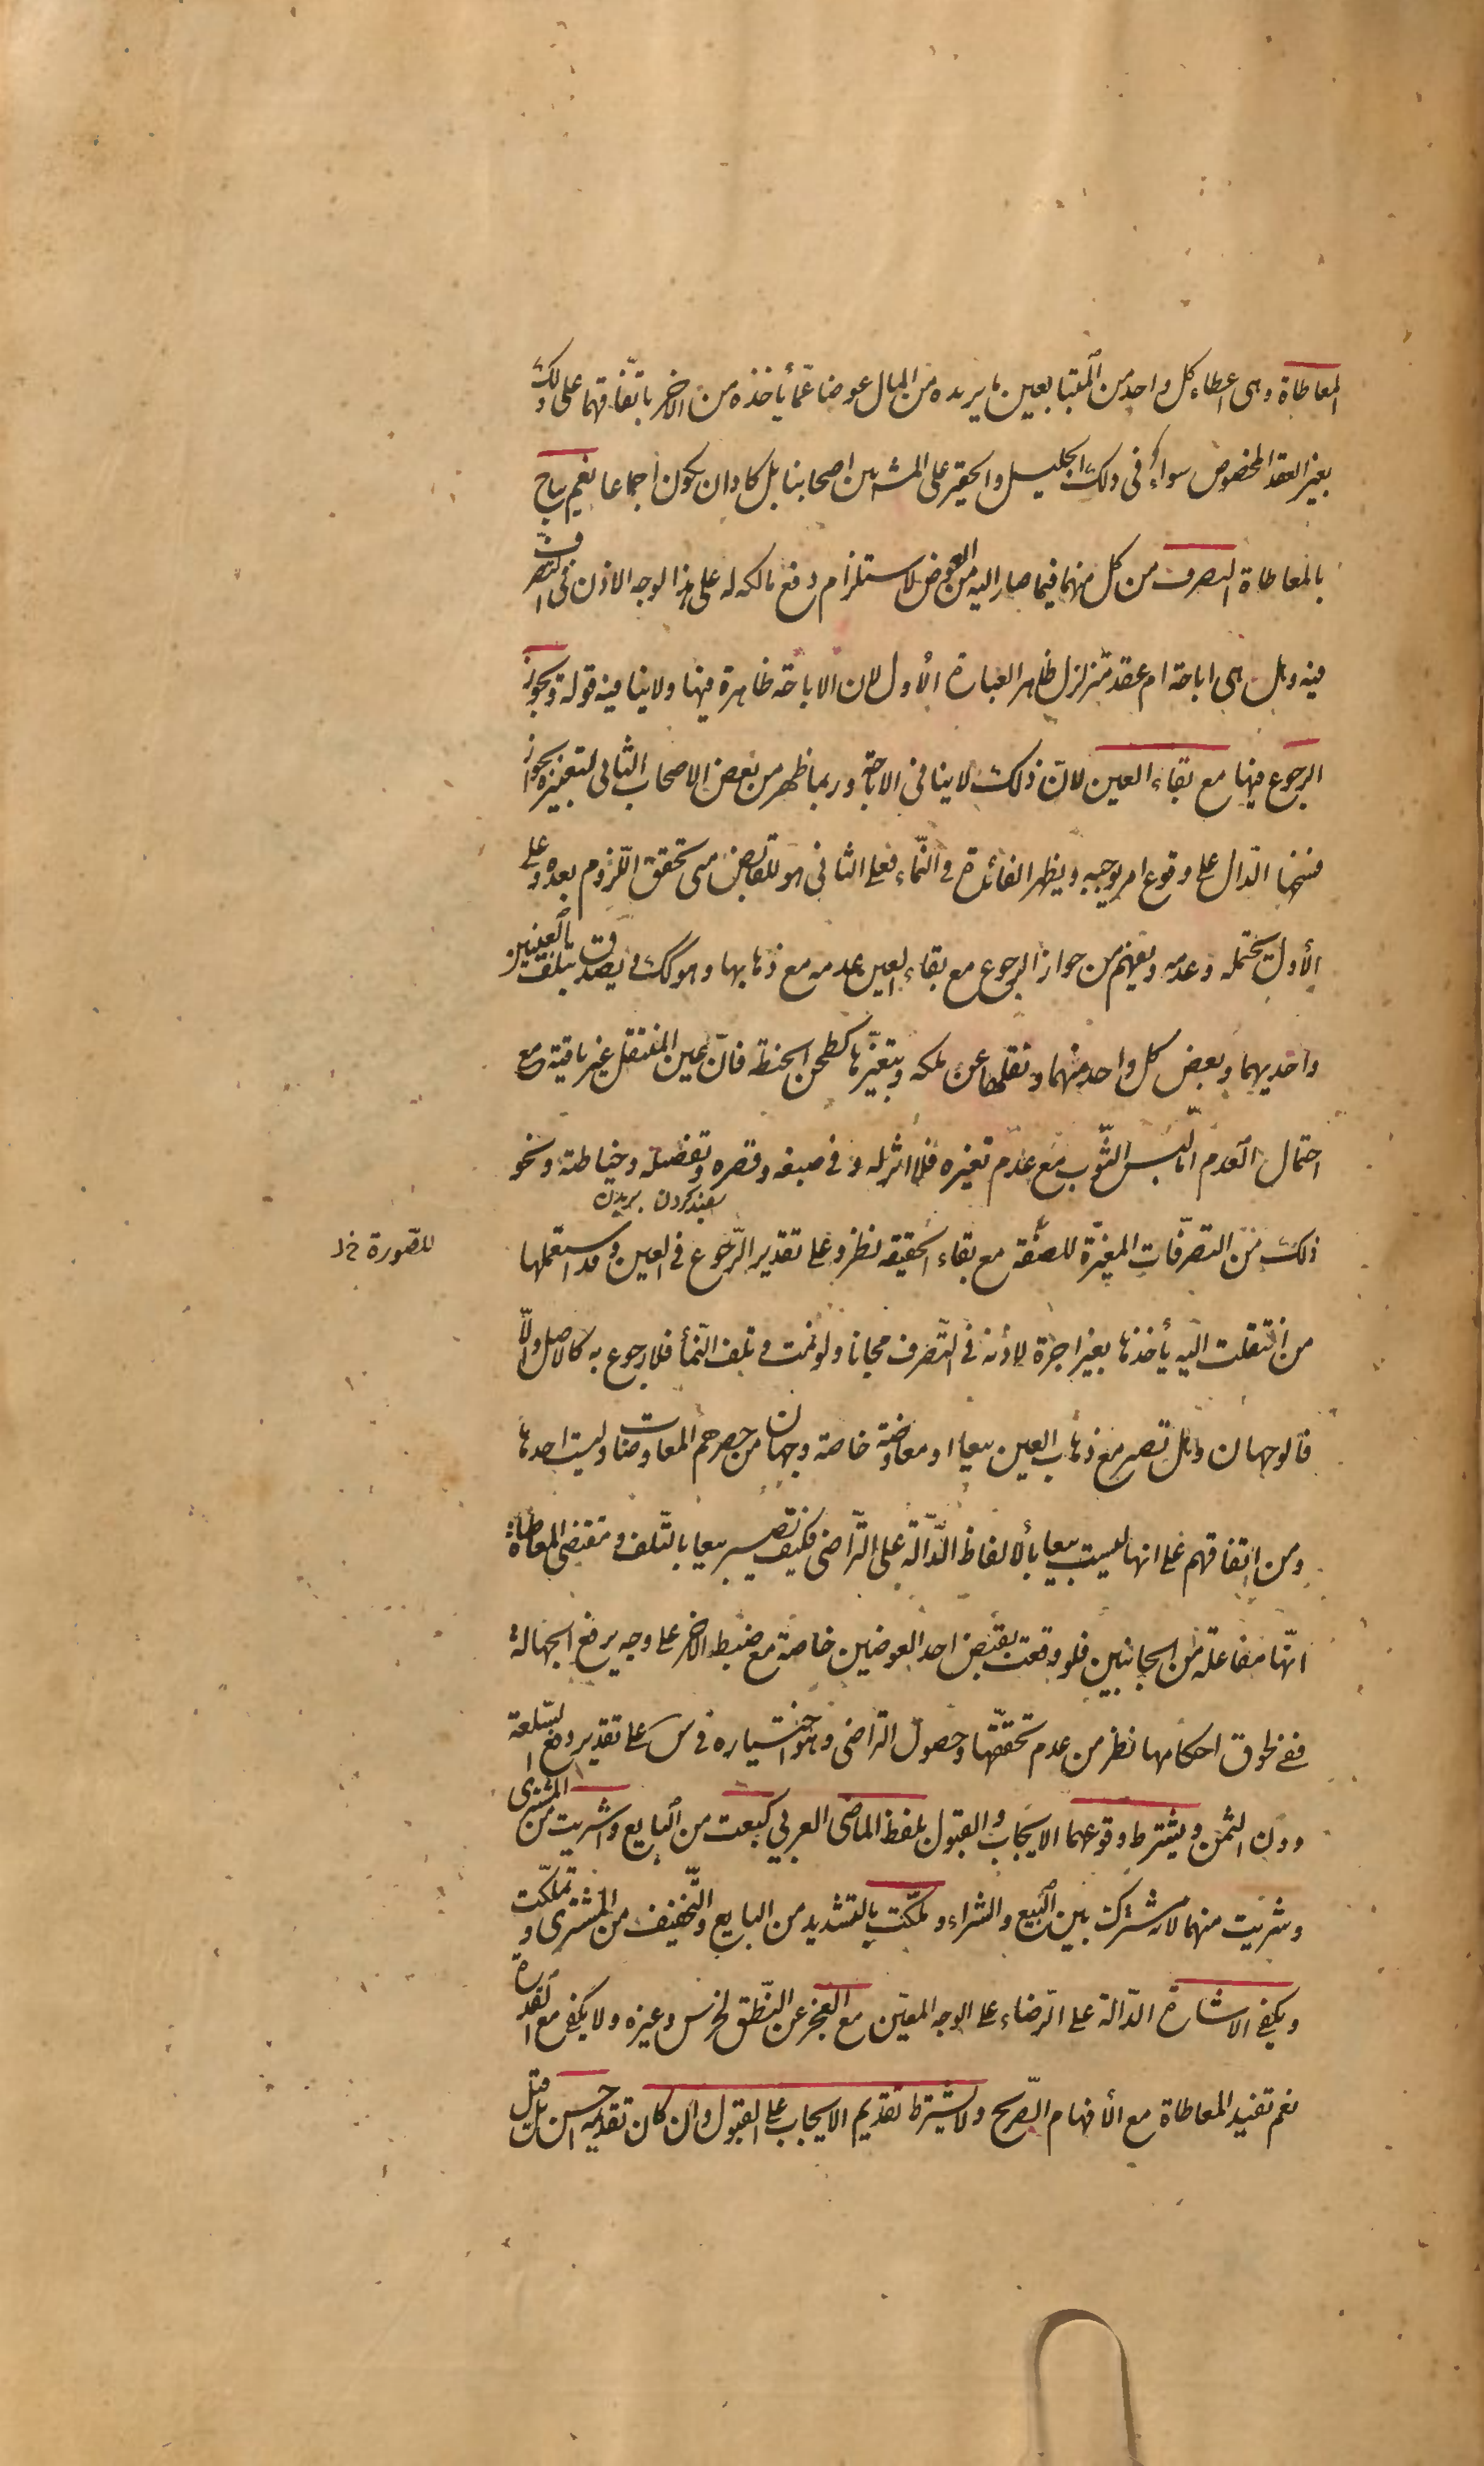 المعاطاة وهى اعطاء كل واحد من المتبايعين ما يريده من المال عوضا عما يأخذه من الاخر باتفاقهما على ذلك
بغير العقد المخصوص سواء فى ذلك الجليل والحقير على المشهور بين اصحابنا بل كاد ان يكون اجماعا نعم يباح
بالمعاطاة التصرف من كل منهما فيما صار اليه من العوض لاستلزام دفع مالكه له على هذا الوجه الاذن فى التصرف
فيه وهل هى اباحة ام عقد متزلزل ظاهر العبارة الأول لان الاباحة ظاهرة فيها ولا ينافيه قوله ويجوز
الرجوع فيها مع بقاء العين لانّ ذلك لا ينافى الاباحة وربما ظهر من بعض الاصحاب الثانى لتعبيره بجواز
فسخها الدّال على وقوع امر يوجبه ويظهر الفائدة فى النّماء فعلى الثانى هو للقابض متى تحقق اللّزوم بعده وعلى
الأول يحتمله وعدمه ويفهم من جواز الرجوع مع بقاء العين عدمه مع ذهابها وهو كك ويصدق بتلف العينين
واحديهما وبعض كل واحد منهما ونقلها عن ملكه وبتغيّرها كطحن الحنطة فانّ عين المنتقل غير باقية مع
احتمال العدم امّا لبس الثّوب مع عدم تغيره فلا اثر له وفى صبغه وقصره وتفصيله وخياطته ونحو
سفيد كردن بريدن
ذلك من التصرّفات المغيّرة للصفة مع بقاء الحقيقه نظر وعلى تقدير الرّجوع فى العين وقد استعملها
للصّورة خ‌ل
من انتقلت اليه يأخذها بغير اجرة لاذنه فى التّصرف مجانا ولو نمت وتلف النّمأ فلا رجوع به كالاصل والّا
فالوجهان وهل تصير مع ذهاب العين بيعا او معاوضة خاصة وجهان من حصرهم المعاوضات وليست احدها
ومن اتفاقهم على انها ليست بيعا بألالفاظ الدّالّة على التّراضى فكيف تصير بيعا بالتّلف ومقتضى المعاطاة
انّها مفاعلة من الجانبين فلو وقعت بقبض احد العوضين خاصة مع ضبط الاخر على وجه يرفع الجهالة
ففى لحوق احكامها نظر من عدم تحقّقها وحصول التراضى وهو اختياره فى س على تقدير دفع السّلعة
دون الثمن ويشترط وقوعهما الايجاب والقبول بلفظ الماضى العربي كبعت من البايع واشتريت من المشترى
وشريت منهما لانه مشترك بين البيع والشراء وملّكت بالتشديد من البايع والتّخفيف من المشترى وتملّكت
ويكفى الاشارة الدّالة على الرّضاء على الوجه المعيّن مع العجز عن النّطق لخرس وغيره ولا يكفى مع القدرة
نعم تفيد المعاطاة مع الأفهام الصّريح ولا يشترط تقديم الايجاب على القبول وان كان تقديمه احسن بل قيل